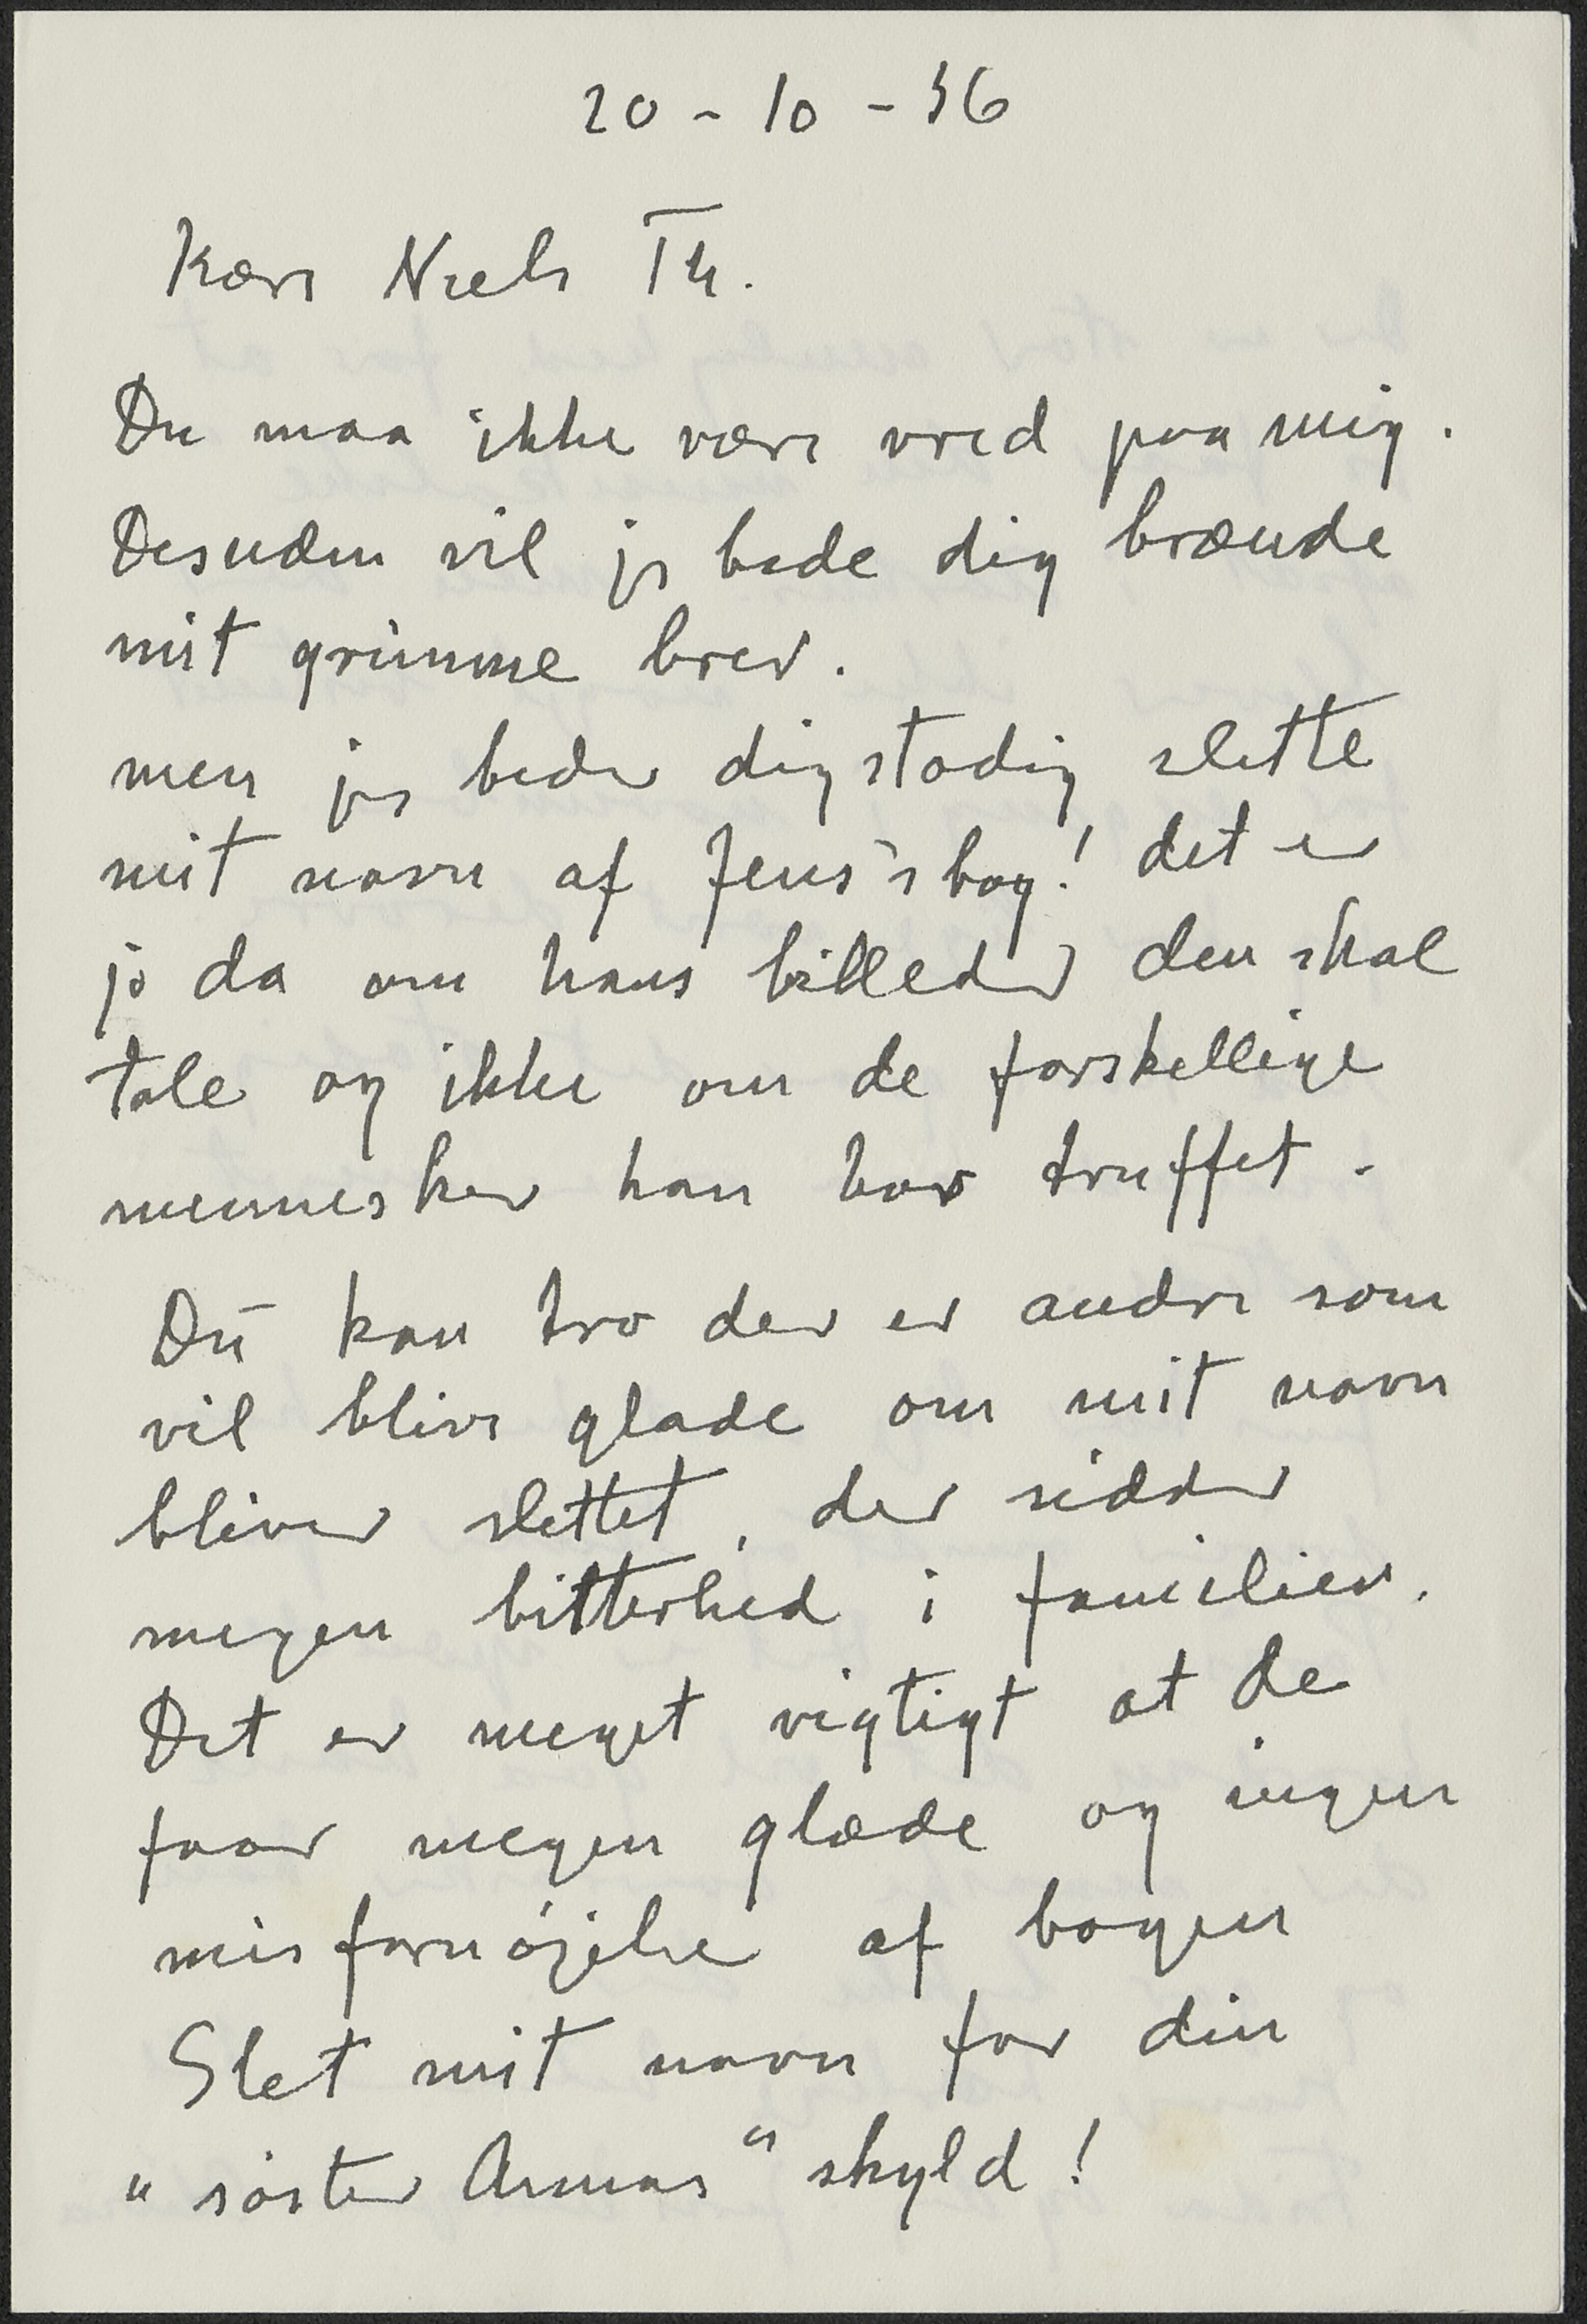 20 - 10 - 36
Kære Niels Th.
Du maa ikke være vred paa mig.
Desuden vil jeg bede dig brænde
mit grimme brev.
men jeg beder dig stadig slette
mit navn af Jens's bog! det er
jo da om hans billeder den skal
tale og ikke om de forskellige
mennesker han har truffet.
Du kan tro der er andre som
vil blive glade om mit navn
bliver slettet, der sidder
megen bitterhed i familien.
Det er meget vigtigt at de
faar megen glæde og ingen
misfornöjelse af bogen
Slet mit navn for din
"söster Annas" skyld!